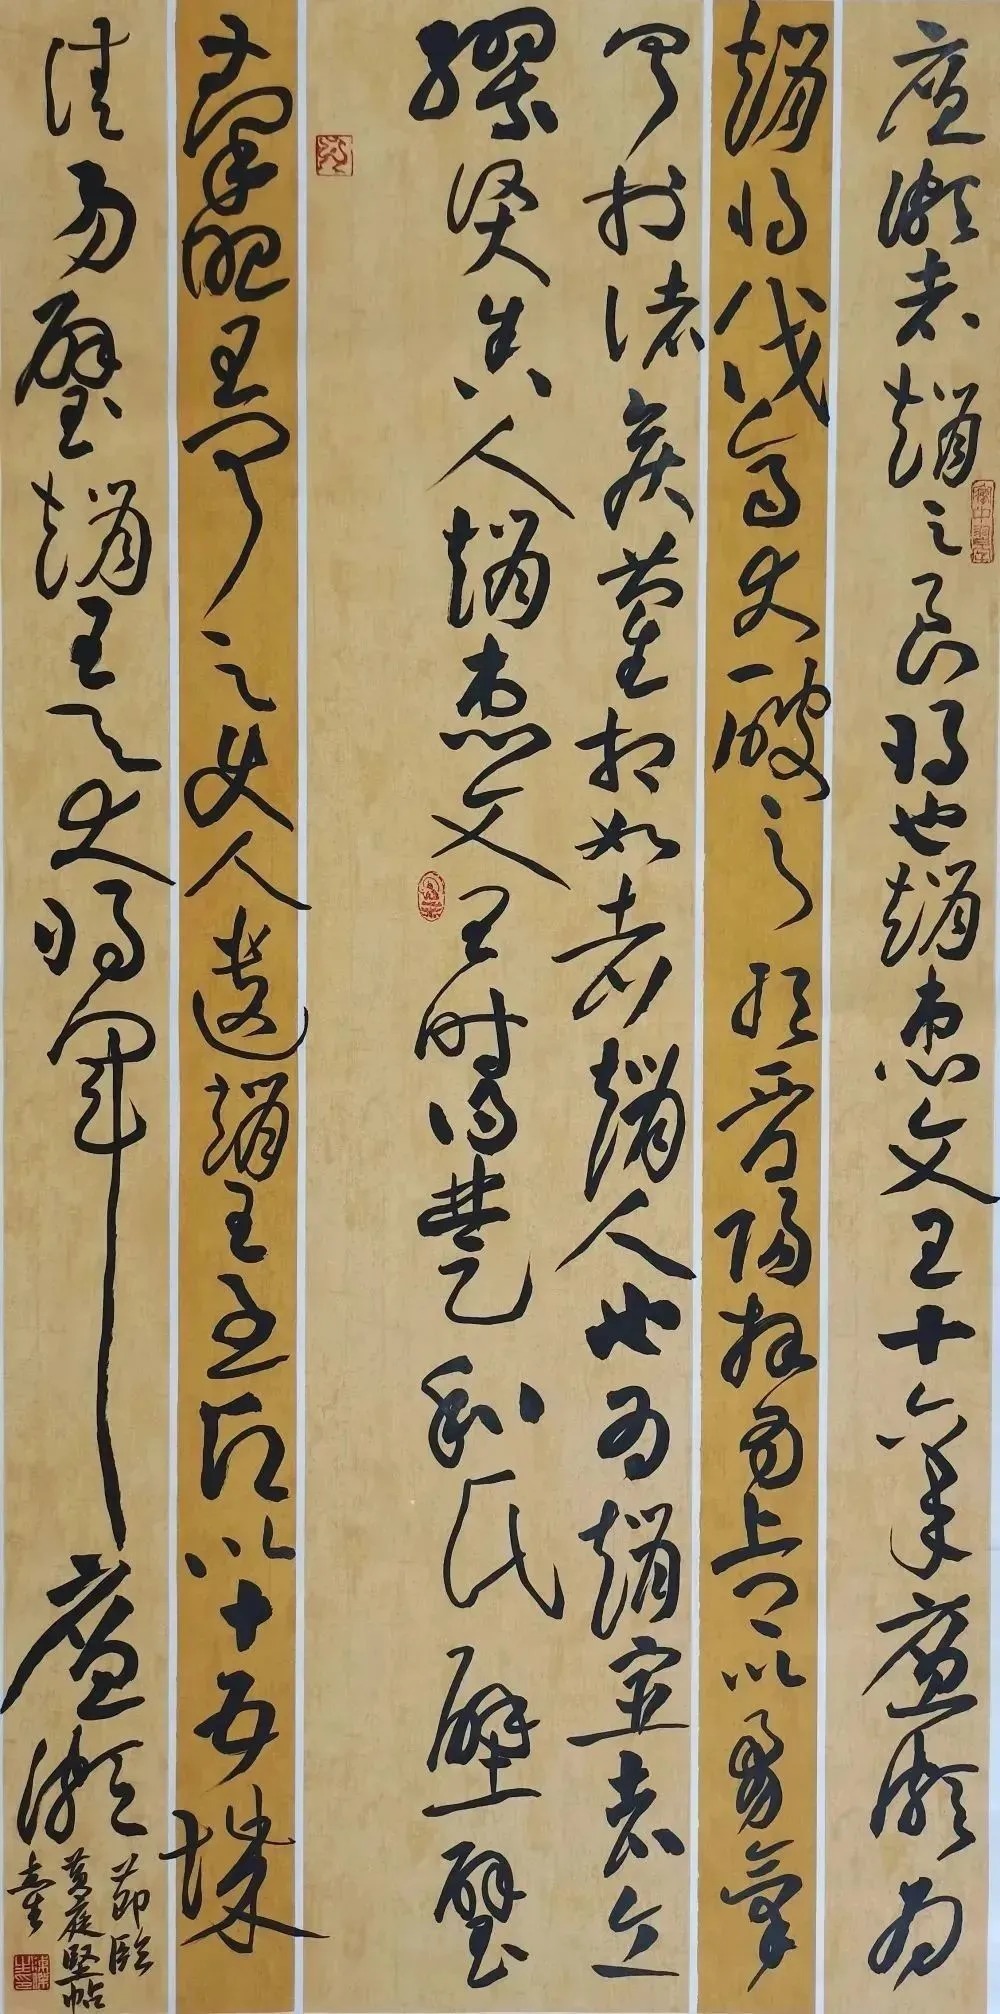 廉頗者趙之良將也趙惠文王十六年廉頗為
趙將伐齊大破之取晉陽拜為上卿以勇氣
聞於諸侯藺相如者趙人也為趙宦者令
繆賢舍人趙惠文王時得楚和氏璧璧
秦昭王聞之使人遺趙王書願以十五城
請易璧趙王與大將軍廉頗
節臨
黃庭堅帖